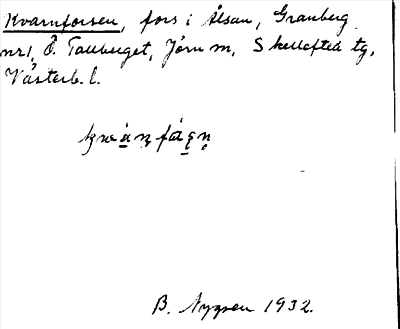 Kvarnforsen, fors i Ålsån, Granberg
nr 1, Ö. Tallberget, Jörn m, Skellefteå tg,
Västerb. l.
B. Nygren 1932.